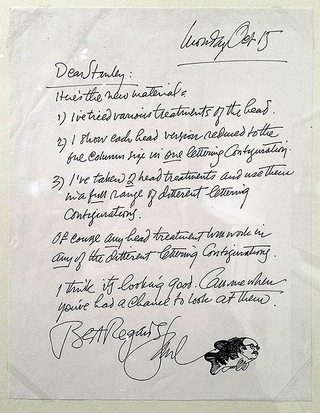 Monday Oct 15
Dear Stanley:
Here's the new material:
1) I've tried various treatments of the head.
2) I show each head version reduced to the
one column size in one lettering configuration.
3) I've taken 2 head treatments and use them
in a full range of different lettering
configurations.
Of course any head treatment will work in
any of the different lettering configurations.
I think it's looking good. Call me when
you've had a chance to look at them.
Best Regards